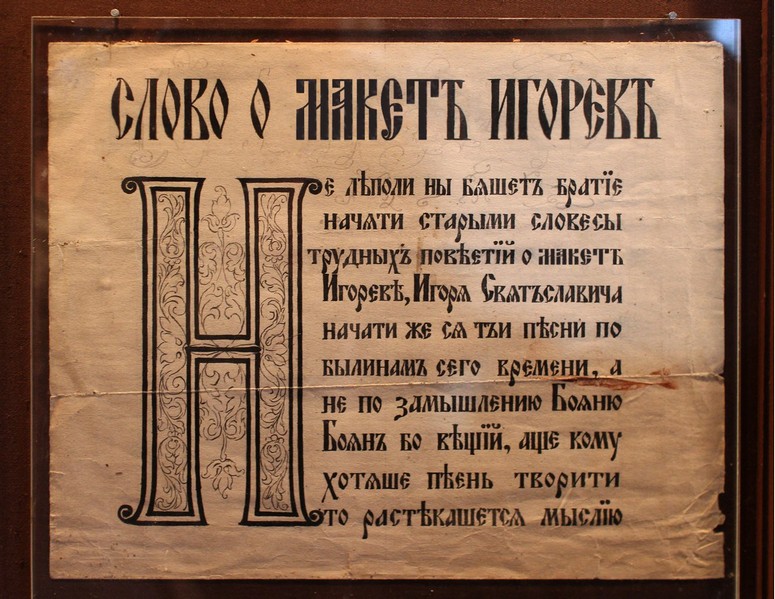 СЛОВО О МАКЕТѢ ИГОРЕВѢ
Не лѣполи ны бяшетъ братїе
начяти старыми словесы
трудныхъ повѣстїй о макетѣ
Игоревѣ, Игоря Святъславича
начати же ся тъи пѣсни по
былинамъ сего времени, а
не по замышлению Бояню
Боянъ бо вѣщїй, аще кому
хотяше пѣснь творити
то растѣкашется мыслїю